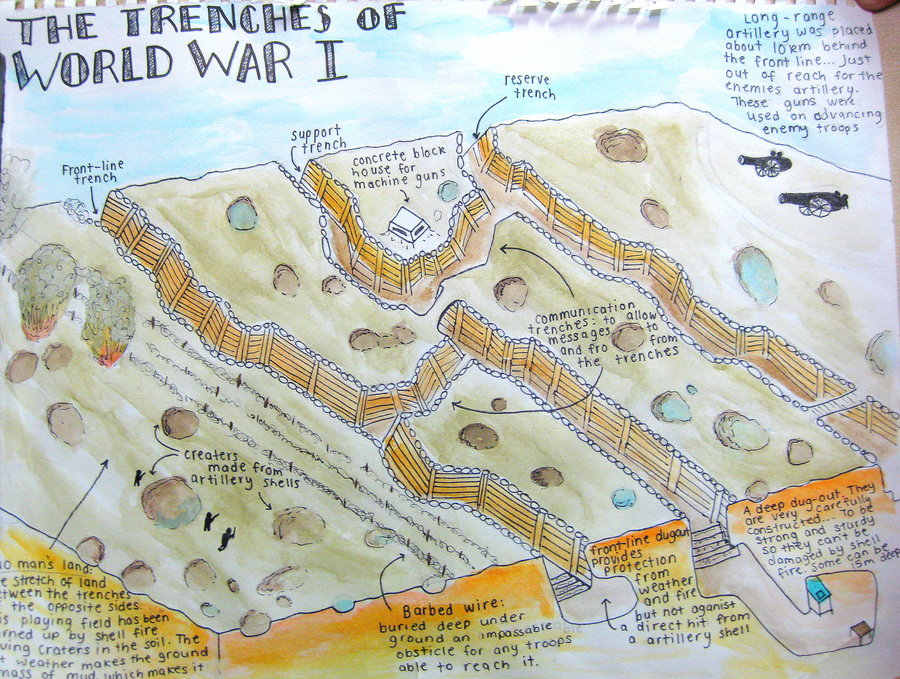 THE TRENCHES OF
WORLD WAR I
Long-range
artillery was placed
about 10km behind
the front line... Just
out of reach for the
enemies artillery.
These guns were
used on advancing
enemy troops
reserve
trench
support
trench
concrete block
house for
machine guns
Front-line
trench
communication
trenches: to allow
messages to
and fro from
the trenches
craters
made from
artillery shells
o man's land:
e stretch of land
etween the trenches
the opposite sides.
is playing field has been
rned up by shell fire
ving craters in the soil. The
t weather makes the ground
mass of mud, which makes it
Barbed wire:
buried deep under
ground an impassable
obstacle for any troops
able to reach it.
front-line dugout
provides
protection
from
weather
and fire
but not aganist
a direct hit from
a artillery shell
A deep dug-out: They
are very carefully
constructed.. To be
strong and sturdy
so they can't be
damaged by shell
fire. Some can be
15m deep